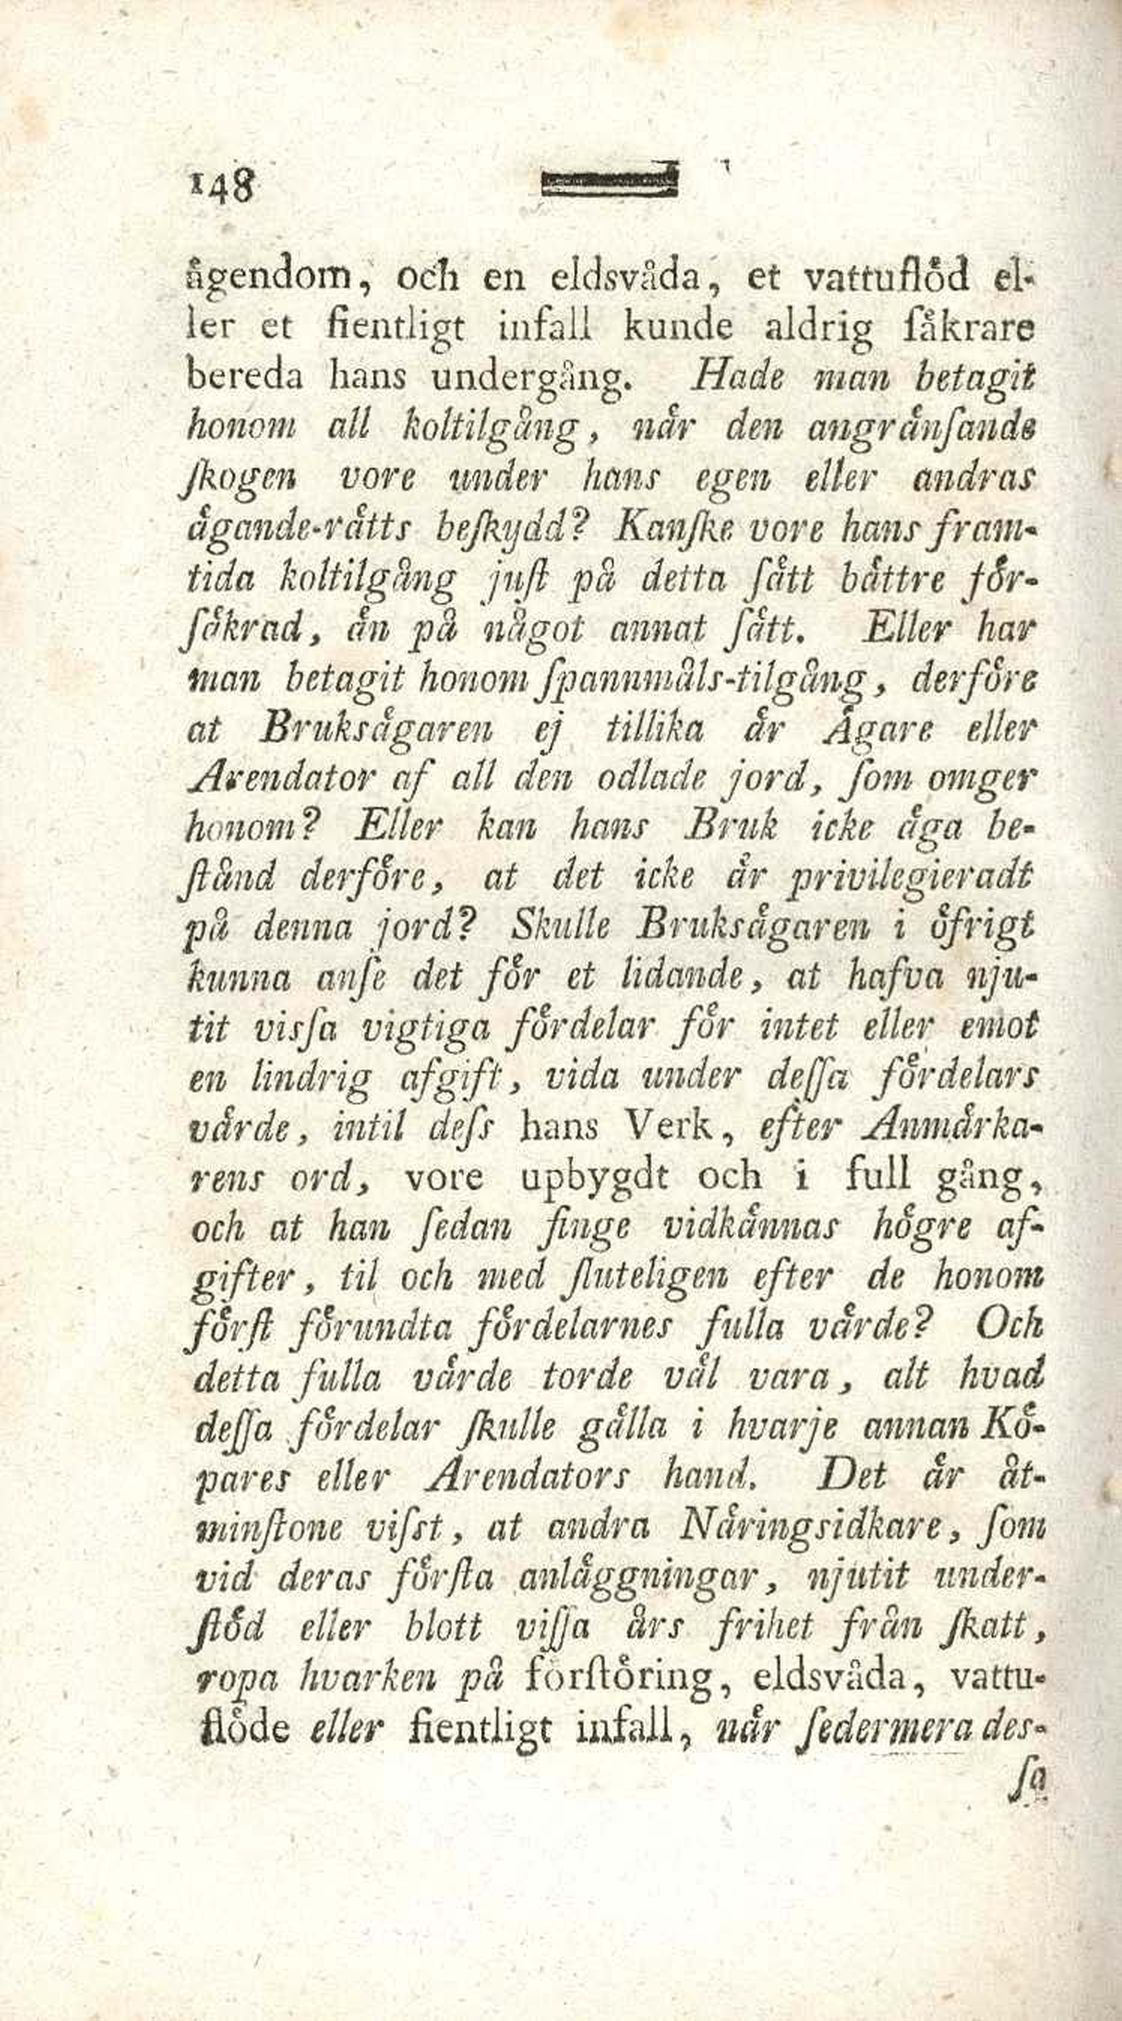 148
ägendom, och en eldsvåda, et vattuflöd el-
ler et fientligt infall kunde aldrig ſäkrare
bereda hans undergång. Hade man betagit
honom all koltilgång, når den angränſande
ſkogen vore under hans egen eller andras
ägande-rätts beſkydd? Kanſke vore hans fram-
tida koltilgång juſt på detta ſätt bättre för-
ſäkrad, än på något annat ſätt. Eller har
man betagit honom ſpannmåls-tilgång, derföre
at Bruksägaren ej tillika är Ägare eller
Arendator af all den odlade jord, ſom omger
honom? Eller kan hans Bruk icke äga be-
ſtånd derföre, at det icke är privilegieradt
på denna jord? Skulle Bruksägaren i öfrigt
kunna anſe det för et lidande, at hafva nju-
tit visſa vigtiga fördelar för intet eller emot
en lindrig afgift, vida under deſſa fördelars
värde, intil deſs hans Verk, efter Anmärka-
rens ord, vore upbygdt och i full gång,
och at han ſedan finge vidkännas högre af-
gifter, til och med ſluteligen efter de honom
förſt förundta fördelarnes fulla värde? Och
detta fulla värde torde väl vara, alt hvad
deſſa fördelar ſkulle gälla i hvarje annan Kö-
pares eller Arendators hand. Det är åt-
minſtone viſst, at andra Näringsidkare, ſom
vid deras förſta anläggningar, njutit under-
ſtöd eller blott viſſa års frihet från ſkatt,
ropa hvarken på förſtöring, eldsvåda, vattu-
flöde eller fientligt infall, når ſedermera des-
ſa